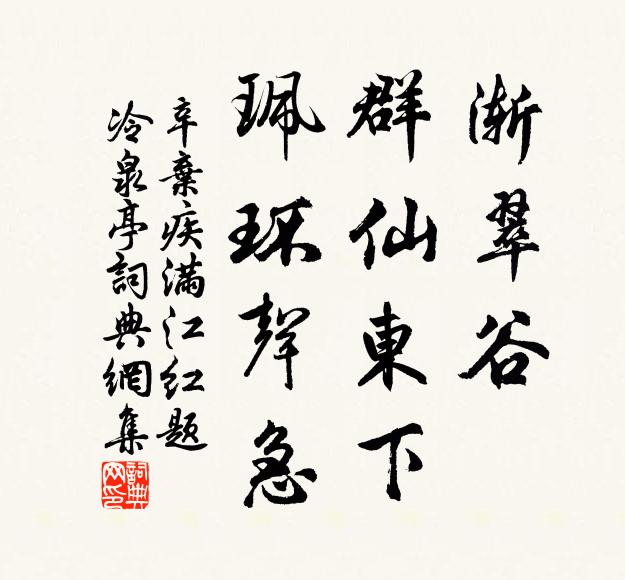 漸翠谷
群仙東下
珮环聲急
辛棄疾滿江紅題
冷泉亭詞典網集
詞典网印